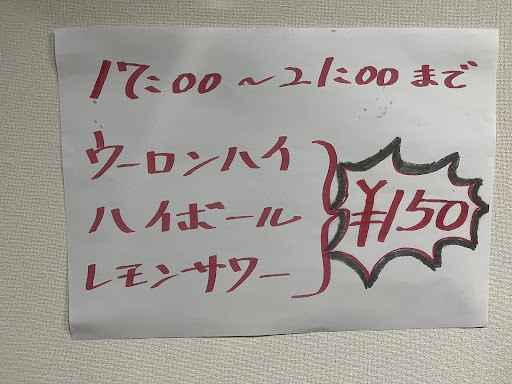 17:00〜21:00まで
ウーロンハイ
ハイボール
レモンサワー
¥150